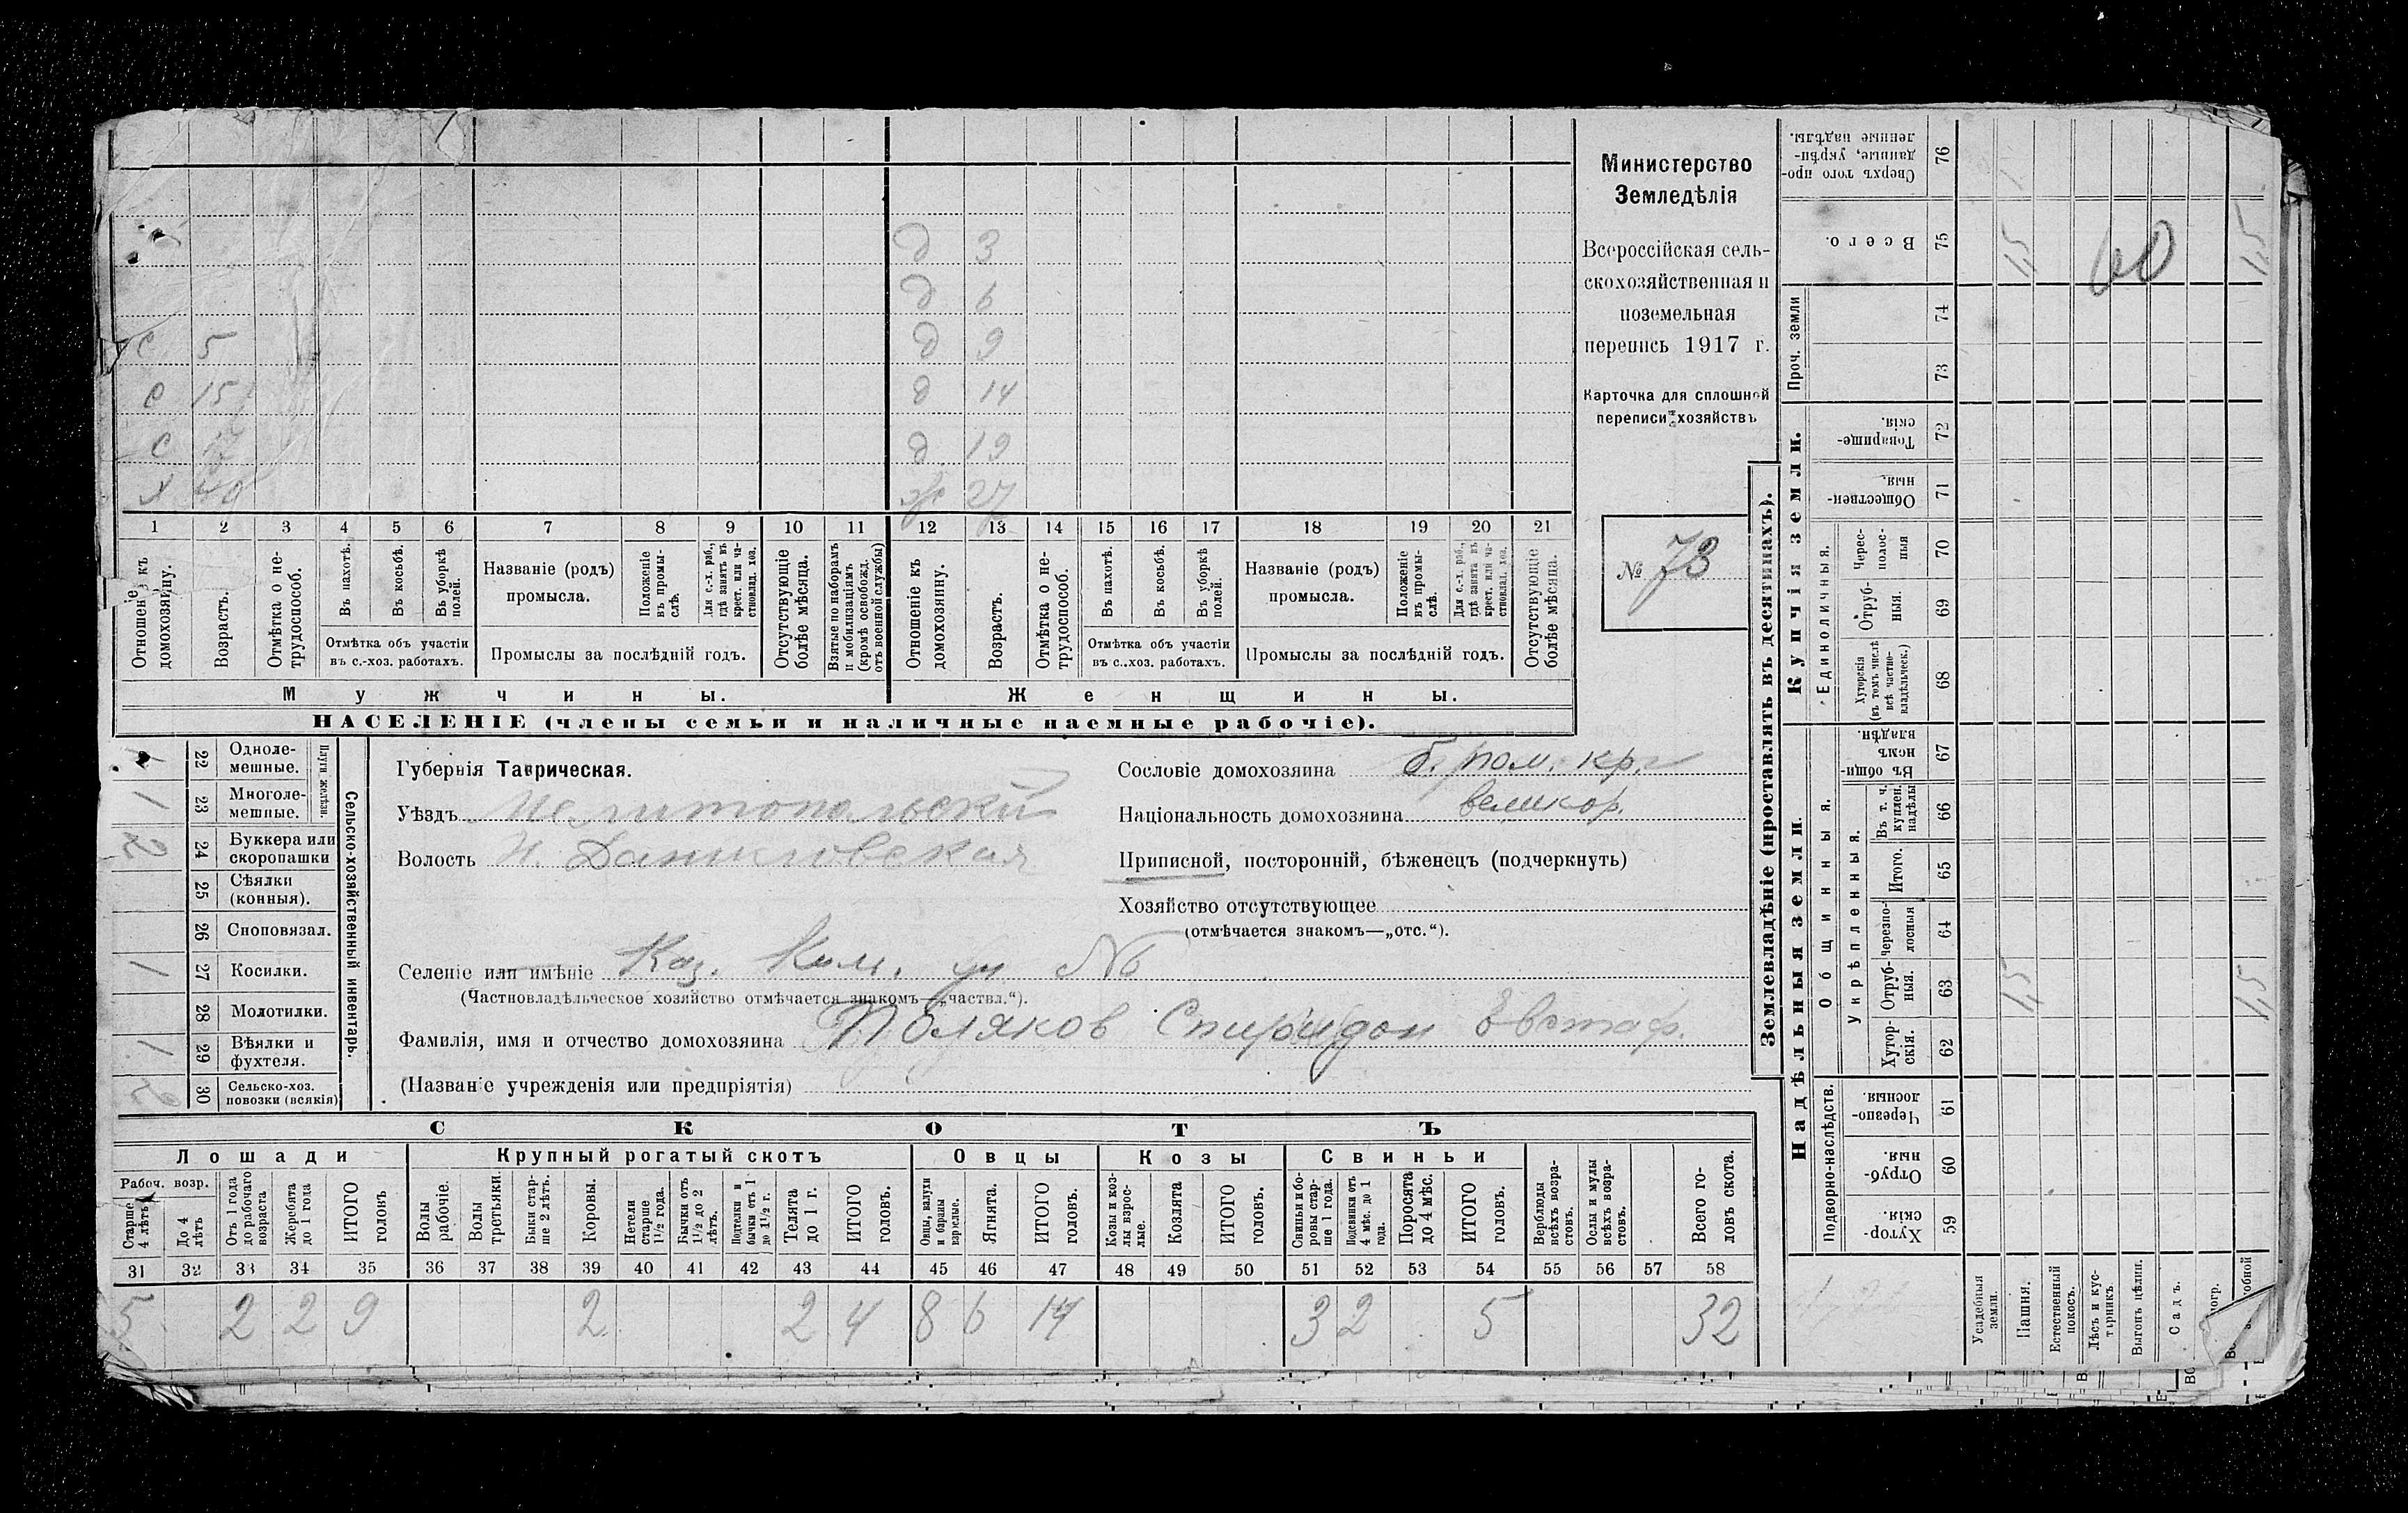 Министерство
Земледѣлія
Всероссійская сель-
скохозяйственная и
поземельная
перепись 1917 г.
Карточка для сплошной
переписи хозяйствъ
№ 73
д 3
д 6
с 5 д 9
с 15 д 14
с 17 д 19
х ж
1 2 3 4 5 6 7 8 9 10 11 12 13 14 15 16 17 18 19 20 21
Отношеніе къ домохозяину.
Возрастъ.
Отмѣтка о не-трудоспособ.
Въ пахотѣ.
Въ косьбѣ.
Въ уборкѣ полей.
Отмѣтка объ участіи
въ с.-хоз. работахъ.
Названіе (родъ)
промысла.
Положеніе въ промы-слѣ.
Для с.-х. раб., гдѣ занятъ въ крест. или ча-стновлад. хоз.
Промыслы за послѣдній годъ.
Отсутствующіе болѣе мѣсяца.
Взятые по наборамъ и мобилизаціямъ (кромѣ освобожд. отъ военной службы)
Отношеніе къ домохозяину.
Возрастъ.
Отмѣтка о не-трудоспособ.
Въ пахотѣ.
Въ косьбѣ.
Въ уборкѣ полей.
Отмѣтка объ участіи
въ с.-хоз. работахъ.
Названіе (родъ)
промысла.
Положеніе въ промы-слѣ.
Для с.-х. раб., гдѣ занята въ крест. или ча-стновлад. хоз.
Промыслы за послѣдній годъ.
Отсутствующіе болѣе мѣсяца.
Мужчины. Женщины.
НАСЕЛЕНІЕ (члены семьи и наличные наемные рабочіе).
Сельско-хозяйственный инвентарь.
Плуги желѣзн.
22 Одноле-мешные.
1 23 Многоле-мешные.
2 24 Буккера или скоропашки
25 Сѣялки (конныя).
26 Сноповязал.
1 27 Косилки.
28 Молотилки.
1 29 Вѣялки и фухтеля.
2 30 Сельско-хоз. повозки (всякія)
Губернія Таврическая.
Уѣздъ Мелитопольскій
Волость Н. Даниловская
Селеніе или имѣніе Каз. Ком. уч №
(Частновладѣльческое хозяйство отмѣчается знакомъ—„частвл.“).
Фамилія, имя и отчество домохозяина Поляков Спиридон Евстаф.
(Названіе учрежденія или предпріятія)
Сословіе домохозяина б. пом. кр.
Національность домохозяина великор.
Приписной, посторонній, бѣженецъ (подчеркнуть)
Хозяйство отсутствующее
(отмѣчается знакомъ—„отс.“).
СКОТЪ
Лошади Крупный рогатый скотъ Овцы Козы Свиньи
Рабоч. возр.
Старше 4 лѣтъ
До 4 лѣтъ
Отъ 1 года до рабочаго возраста
Жеребята до 1 года
ИТОГО головъ
Волы рабочіе.
Волы третьяки.
Быки стар-ше 2 лѣтъ.
Коровы.
Нетели старше 1 1/2 года.
Бычки отъ 1 1/2 до 2 лѣтъ.
Подтелки и бычки отъ 1 до 1 1/2 г.
Телята до 1 г.
ИТОГО головъ.
Овцы, валухи и бараны взрослые.
Ягнята.
ИТОГО головъ.
Козы и коз-лы взрос-лые.
Козлята
ИТОГО головъ.
Свиньи и бо-ровы стар-ше 1 года.
Подсвинки отъ 4 мѣс. до 1 года.
Поросята до 4 мѣс.
ИТОГО головъ.
Верблюды всѣхъ возра-стовъ.
Ослы и мулы всѣхъ возра-стовъ.
Всего го-ловъ скота.
31 32 33 34 35 36 37 38 39 40 41 42 43 44 45 46 47 48 49 50 51 52 53 54 55 56 57 58
5 2 2 9 2 2 4 8 6 14 3 2 5 32
Землевладѣніе (проставлять въ десятинахъ).
Надѣльныя земли.
Купчія земли.
Проч. земли
Подворно-наслѣдств.
Общинныя.
Укрѣпленныя.
Единоличныя.
Сверхъ того про-данные, укрѣп-ленные надѣлы. 76
Всего. 75
74
73
Товарище-скія. 72
Обществен-ныя. 71
Черес-полос-ныя 70
Отруб-ныя. 69
Хуторскія (въ томъ числѣ всѣ частно-владѣльческ.) 68
Въ общи-номъ владѣн. 67
Въ т. ч. куплен. надѣлы 66
Итого. 65
Черезпо-лосныя 64
Отруб-ныя. 63
Хутор-скія. 62
Черезпо-лосныя. 61
Отруб-ныя. 60
Хутор-скія. 59
Усадебныя земли.
Пашня.
Естественный покосъ.
Лѣсъ и кус-тарникъ.
Выгонъ цѣлин.
Садъ.
15 60 15
15 15